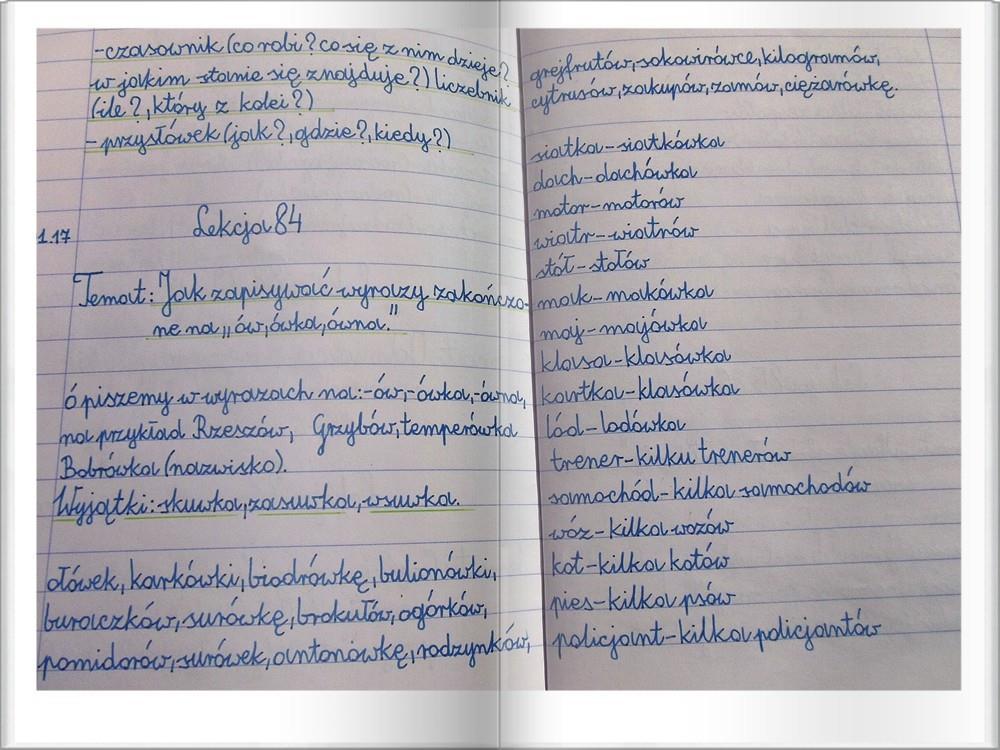 -czasownik (co robi? co się z nim dzieje?
w jakim stanie się znajduje?) liczebnik
(ile?, który z kolei?)
-przysłówek (jak?, gdzie?, kiedy?)
Lekcja 84
1.17
Temat: Jak zapisywać wyrazy zakończo-
ne na „ów, ówka, ówna."
ó piszemy w wyrazach na: -ów, -ówka, -ówna,
na przykład Rzeszów, Grzybów, temperówka
Bobrówka (nazwisko).
Wyjątki: skuwka, zasuwka, wsuwka.
ołówek, karkówki, biodrówkę, bulionówki,
buraczków, surówkę, brokułów, ogórków,
pomidorów, surówek, antonówkę, rodzynków,
grejfrutów, sokowirówce, kilogramów,
cytrusów, zakupów, zamów, ciężarówkę.
siatka-siatkówka
dach-dachówka
motor-motorów
wiatr-wiatrów
stół-stołów
mak-makówka
maj-majówka
klasa-klasówka
kartka-klasówka
lód-lodówka
trener-kilku trenerów
samochód-kilka samochodów
wóz-kilka wozów
kot-kilka kotów
pies-kilka psów
policjant-kilka policjantów